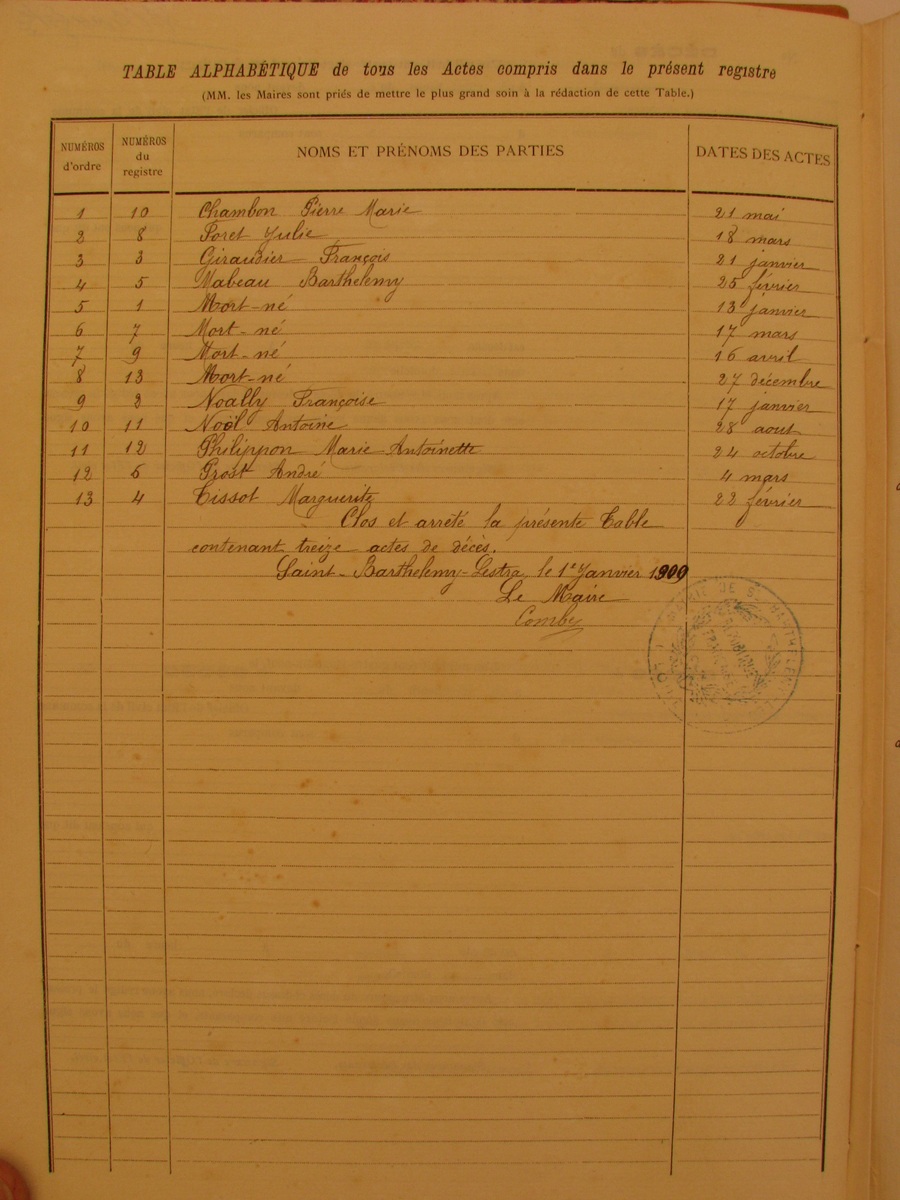 TABLE ALPHABÉTIQUE de tous les Actes compris dans le présent registre
(MM. les Maires sont priés de mettre le plus grand soin à la rédaction de cette Table.)
NUMÉROS d'ordre NUMÉROS du registre NOMS ET PRÉNOMS DES PARTIES DATES DES ACTES
1 10 Chambon Pierre Marie 21 mai
2 8 Foret Julie 18 mars
3 3 Giraudier François 21 janvier
4 5 Mabeau Barthelemy 25 février
5 1 Mort-né 13 janvier
6 7 Mort-né 17 mars
7 9 Mort-né 16 avril
8 13 Mort-né 27 décembre
9 2 Noally Françoise 17 janvier
10 11 Noël Antoine 28 aout
11 12 Philippon Marie Antoinette 24 octobre
12 6 Prost André 4 mars
13 4 Tissot Marguerite 22 février
Clos et arrêté la présente Table
contenant treize actes de décès.
Saint-Barthelemy-Lestra, le 1er Janvier 1900
Le Maire
MAIRIE DE ST BARTHELEMY